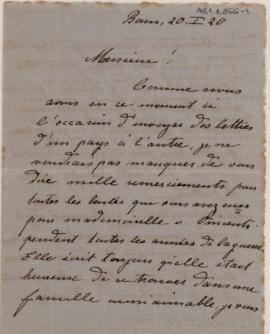 AG.1.1.856-1
Bonn, 20. I 20
Monsieur!
Comme nous
avons en ce moment ici
l'occasion d'envoyer des lettres
d'un pays à l'autre, je ne
voudrais pas manquer de vous
dire mille remerciements pour
toutes les bontés que vous avez eues
pour mademoiselle v.
pendant toutes les années de la guerre.
Elle écrit toujours qu'elle était
heureuse de se trouver dans une
famille si aimable, je vous